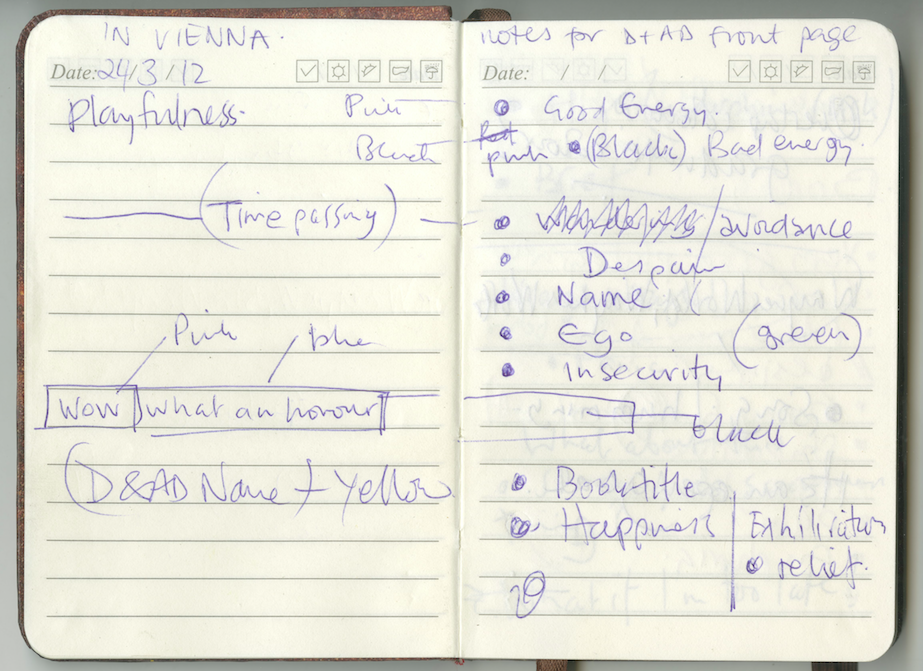 IN VIENNA.
Date: 24/3/12
Playfulness.
Pink
Black
(Time passing)
Pink
blue
Wow what an honour
(D&AD Name + Yellow
notes for D+AD front page
Date: / /
Good Energy.
pink (Black) Bad energy.
/avoidance
Despair
Name
Ego (green)
Insecurity
black
Booktitle
Happiness Exhiliration
relief.